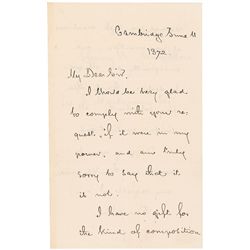 Cambridge June 11
1872.
My Dear Sir.
I should be very glad
to comply with your re-
quest, if it were in my
power, and am truly
sorry to say that it
is not.
I have no gift for
the kind of composition